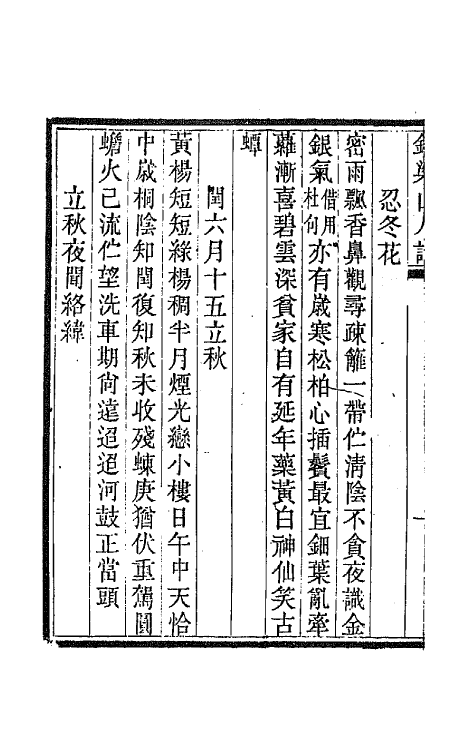 忍冬花
密雨飄香鼻觀尋疎籬一帶伫淸陰不貪夜識金
銀氣借用杜句亦有歲寒松柏心插鬢最宜鈿葉亂牽
蘿漸喜碧雲深貧家自有延年藥黃白神仙笑古
蟫
閏六月十五立秋
黃楊短短綠楊稠半月煙光戀小樓日午中天恰
中歲桐陰知閏復知秋未收殘暕庚猶伏重駕圓
蟾火已流伫望洗車期尙遠迢迢河鼓正當頭
立秋夜聞絡緯